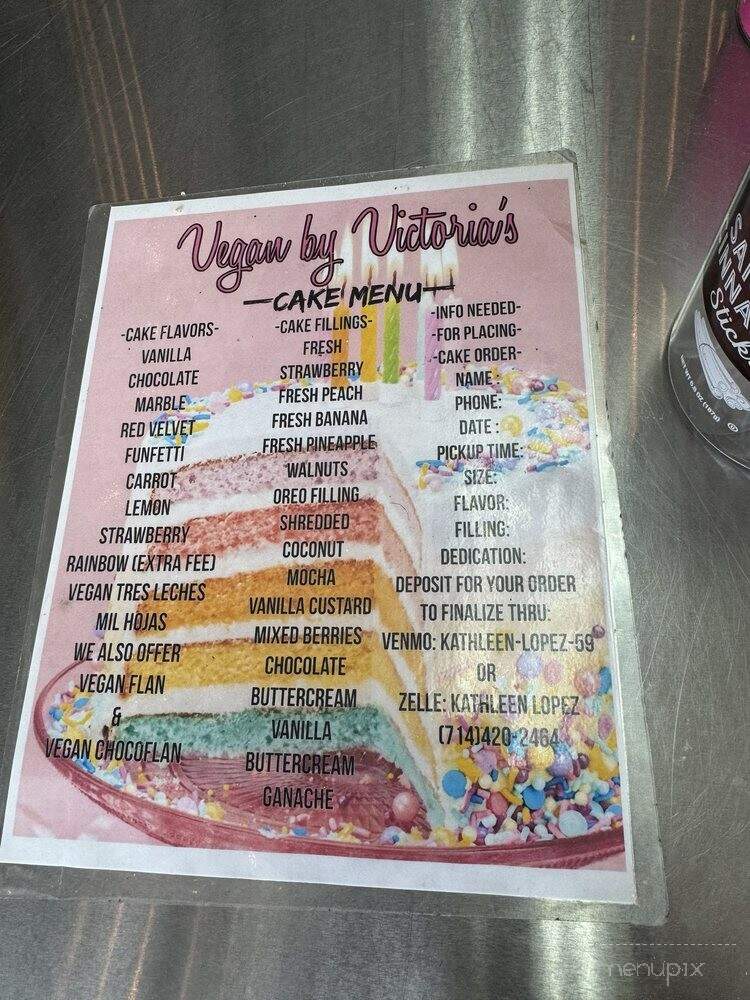 Vegan by Victoria's
—CAKE MENU—
-CAKE FLAVORS-
VANILLA
CHOCOLATE
MARBLE
RED VELVET
FUNFETTI
CARROT
LEMON
STRAWBERRY
RAINBOW (EXTRA FEE)
VEGAN TRES LECHES
MIL HOJAS
WE ALSO OFFER
VEGAN FLAN
&
VEGAN CHOCOFLAN
-CAKE FILLINGS-
FRESH
STRAWBERRY
FRESH PEACH
FRESH BANANA
FRESH PINEAPPLE
WALNUTS
OREO FILLING
SHREDDED
COCONUT
MOCHA
VANILLA CUSTARD
MIXED BERRIES
CHOCOLATE
BUTTERCREAM
VANILLA
BUTTERCREAM
GANACHE
-INFO NEEDED-
-FOR PLACING-
-CAKE ORDER-
NAME :
PHONE:
DATE :
PICKUP TIME:
SIZE:
FLAVOR:
FILLING:
DEDICATION:
DEPOSIT FOR YOUR ORDER
TO FINALIZE THRU:
VENMO: KATHLEEN-LOPEZ-59
OR
ZELLE: KATHLEEN LOPEZ
(714)420-2464
Stick
menupix